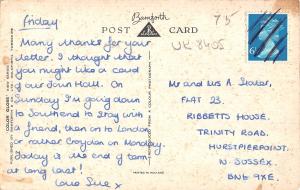 Friday
Bamforth
POST CARD
75
UK 8405
Many thanks for your
letter. I thought that
you might like a card
of our Town Hall. On
Sunday I'm going down
to Southend to stay with
a friend, then on to London
or rather Croydon on Monday.
Today is the end of term
at long last!
Love Sue x
Mr and Mrs A.
FLAT 23,
RIBBETTS HOUSE,
TRINITY ROAD,
HURSTPIERPOINT,
W. SUSSEX.
BN6 9XE.